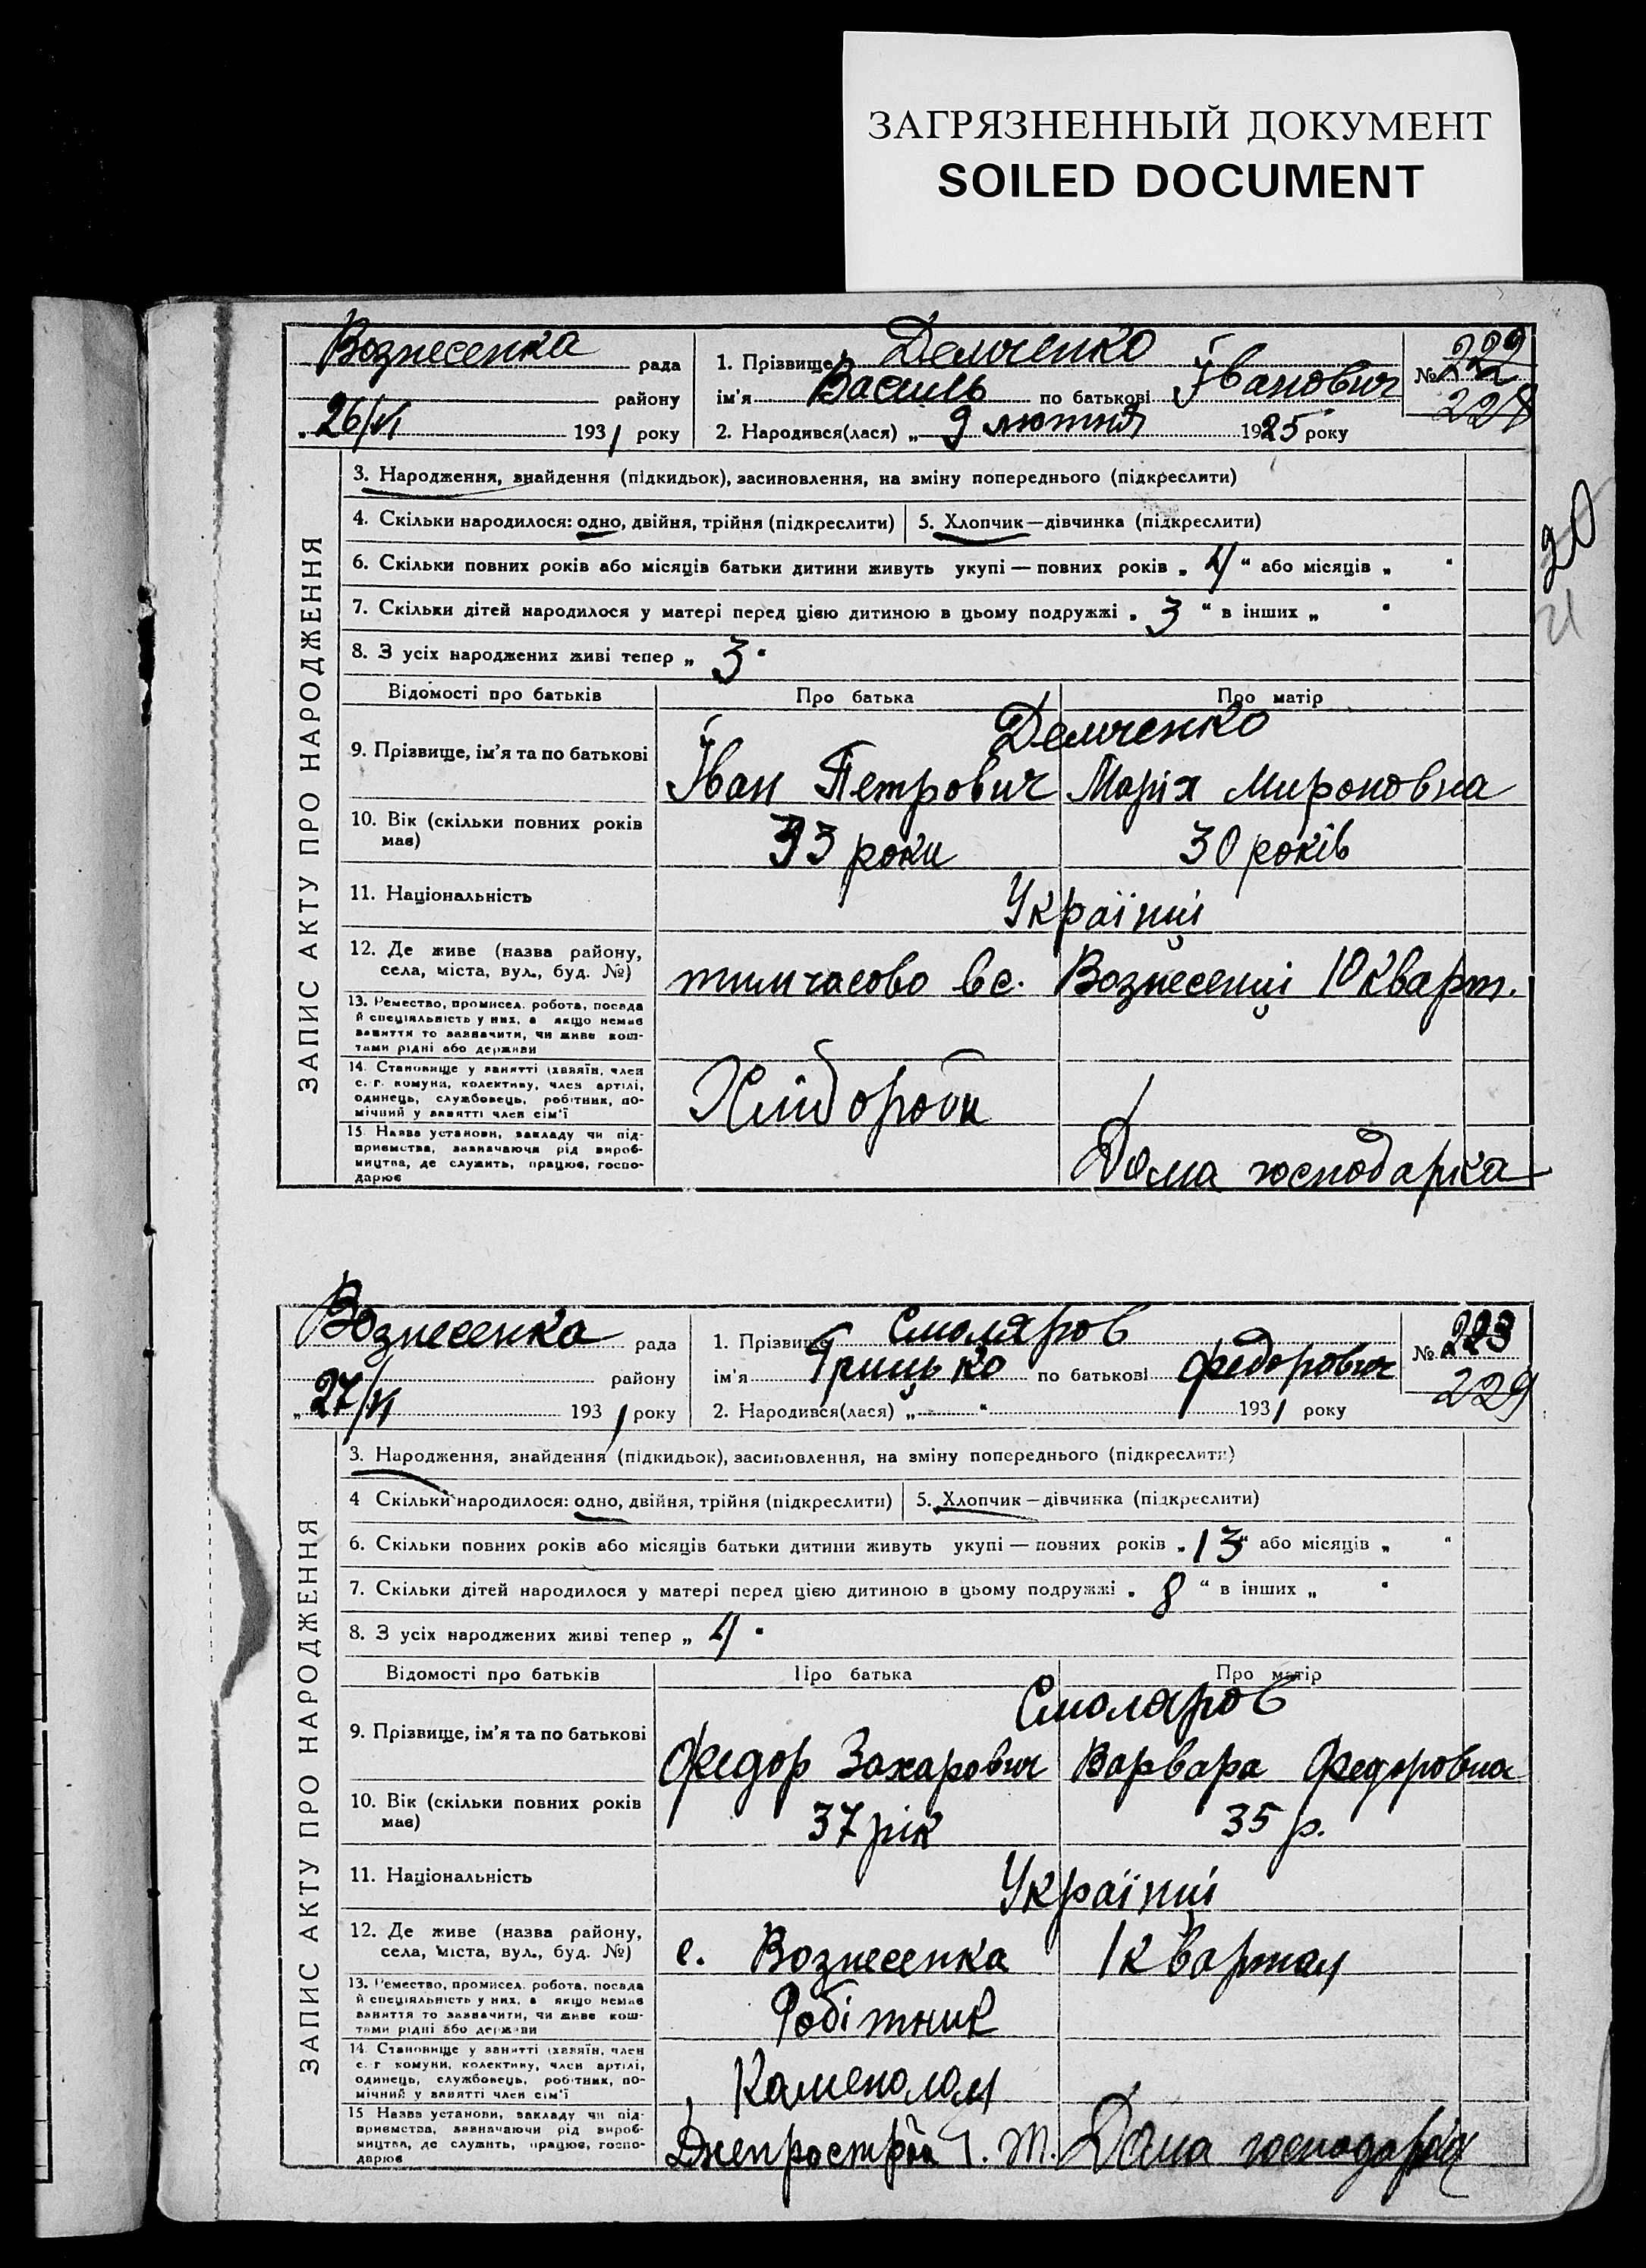 ЗАГРЯЗНЕННЫЙ ДОКУМЕНТ
SOILED DOCUMENT
Вознесенка рада
району
„26/VI 1931 року
1. Прізвище Демченко
ім'я Василь по батькові Іванович
2. Народився(лася) „ 9 лютня 1925 року
№ 222
228
20
21
ЗАПИС АКТУ ПРО НАРОДЖЕННЯ
3. Народження, знайдення (підкидьок), засиновлення, на зміну попереднього (підкреслити)
4. Скільки народилося: одно, двійня, трійня (підкреслити) 5. Хлопчик—дівчинка (підкреслити)
6. Скільки повних років або місяців батьки дитини живуть укупі — повних років „ 4 “ або місяців „ “
7. Скільки дітей народилося у матері перед цією дитиною в цьому подружжі „ 3 “ в інших „ “
8. З усіх народжених живі тепер „ 3 “
Відомості про батьків Про батька Про матір
Демченко
9. Прізвище, ім'я та по батькові Іван Петрович Марія Мироновна
10. Вік (скільки повних років має) 33 роки 30 років
11. Національність Українці
12. Де живе (назва району, села, міста, вул., буд. №) тимчасово в с. Вознесенці 10 кварт.
13. Ремество, промисел, робота, посада й спеціяльність у них, а якщо немає заняття то зазначити, чи живе коштами рідні або держави
14. Становище у занятті (хазяїн, член с. г. комуни, колективу, член артілі, одинець, службовець, робітник, помічний у занятті член сім'ї Хліборобы
15. Назва установи, закладу чи підприємства, зазначаючи рід виробництва, де служить, працює, господарює Дома господарка
Вознесенка рада
району
„27/VI 1931 року
1. Прізвище Смоляров
ім'я Грицько по батькові Федорович
2. Народився(лася) „ “ 1931 року
№ 223
229
ЗАПИС АКТУ ПРО НАРОДЖЕННЯ
3. Народження, знайдення (підкидьок), засиновлення, на зміну попереднього (підкреслити)
4 Скільки народилося: одно, двійня, трійня (підкреслити) 5. Хлопчик—дівчинка (підкреслити)
6. Скільки повних років або місяців батьки дитини живуть укупі — повних років „ 13 “ або місяців „ “
7. Скільки дітей народилося у матері перед цією дитиною в цьому подружжі „ 8 “ в інших „ “
8. З усіх народжених живі тепер „ 4 “
Відомості про батьків Про батька Про матір
Смоляров
9. Прізвище, ім'я та по батькові Федор Захарович Варвара Федоровна
10. Вік (скільки повних років має) 37 рік 35 р.
11. Національність Українці
12. Де живе (назва району, села, міста, вул., буд. №) с. Вознесенка 1 квартал
13. Ремество, промисел, робота, посада й спеціяльність у них, а якщо немає заняття то зазначити, чи живе коштами рідні або держави Робітник
14. Становище у занятті (хазяїн, член с. г. комуни, колективу, член артілі, одинець, службовець, робітник, помічний у занятті член сім'ї Каменолом
15 Назва установи, закладу чи підприємства, зазначаючи рід виробництва, де служить, працює, господарює Днепрострой Дома